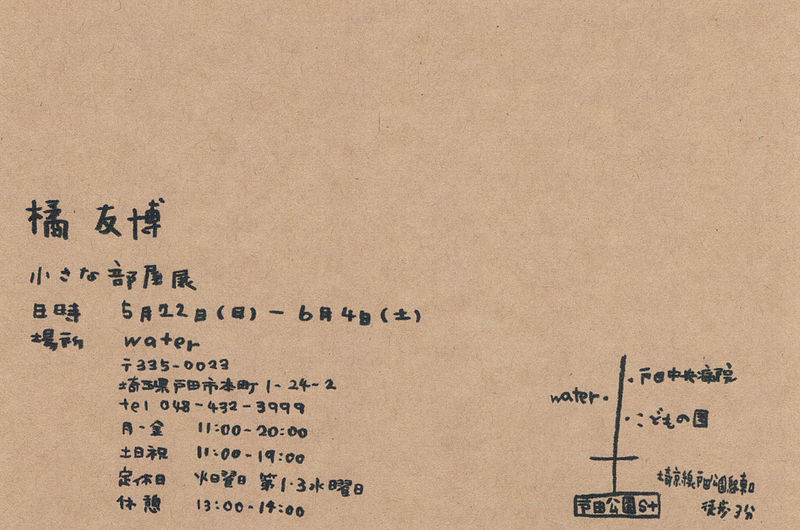 橘 友博
小さな部屋展
日時 5月22日(日)ー6月4日(土)
場所 water
〒335-0023
埼玉県戸田市本町1-24-2
tel 048-432-3999
月-金 11:00-20:00
土日祝 11:00-19:00
定休日 火曜日 第1・3水曜日
休憩 13:00-14:00
・戸田中央病院
water・
・こどもの国
埼京線戸田公園駅東口
徒歩3分
戸田公園St